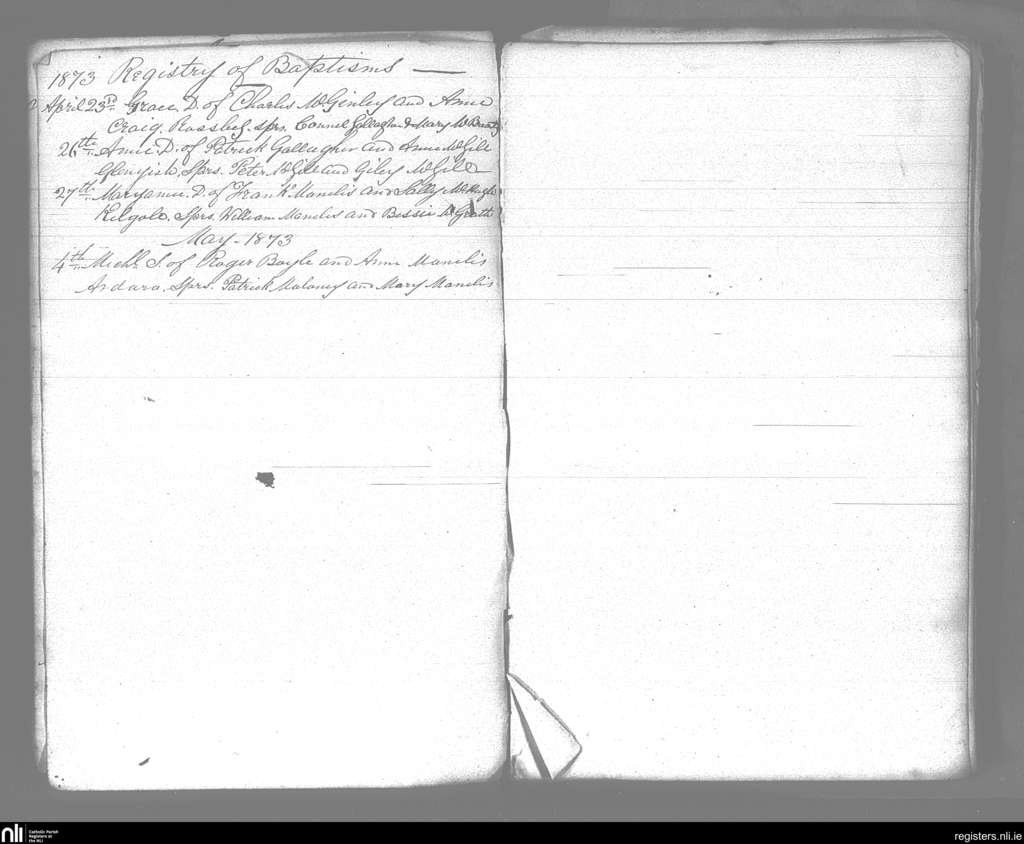 1873 Registry of Baptisms —
April 23rd Grace D. of Charles McGinley and Anne
Craig. Rossbeg. Sprs. Connel Gallagher & Mary
26th Anne D. of Patrick Gallagher and Anne McGill
Glengish. Sprs. Peter McGill and Giley McGill
27th Maryanne. D. of Frank Manelis and Sally McHugh
Kilgole. Sprs. William Manelis and Bessie McGrath
May - 1873
4th Michl. S. of Roger Boyle and Anne Manelis
Ardara. Sprs. Patrick Maloney and Mary Manelis
nli
Catholic Parish
Registers at
the NLI
registers.nli.ie